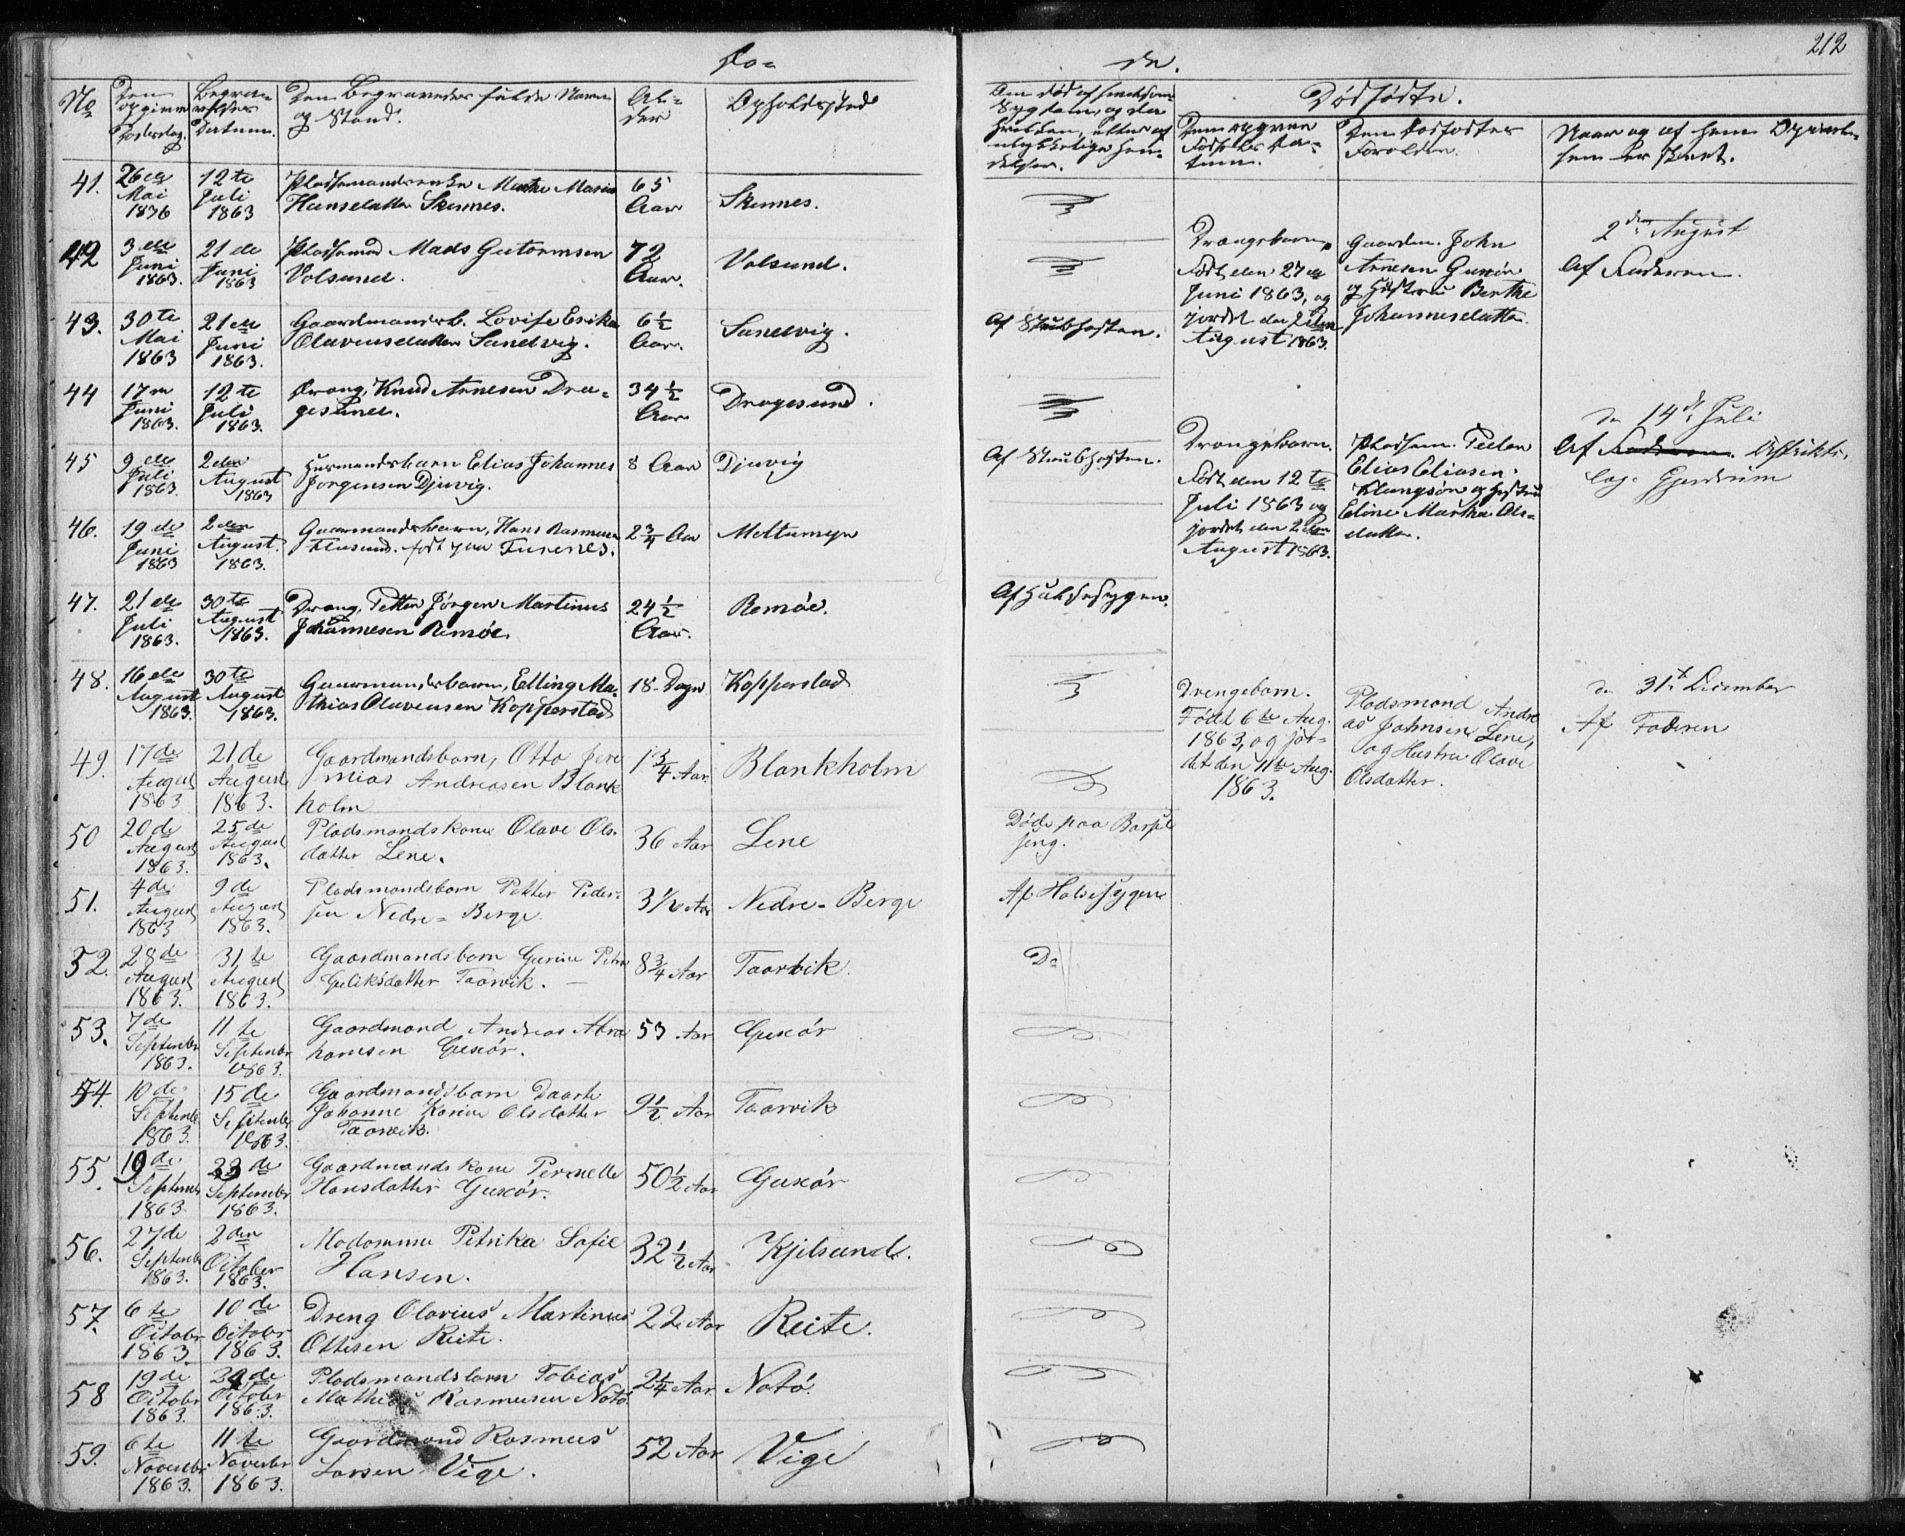 Dø-
de.
212
No
Den opgivne Dødsdag.
Begravelses Datum.
Den Begravedes fulde Navn og Stand.
Alder
Opholdssted
Om død af smitsom Sygdom, og da hvilken, eller af ulykkelige Hændelser.
Dødfødte.
Den opgivne Fødsels Datum.
Den Dødfødtes Forældre.
Naar og af hvem
41.
26de Mai 1836
12te Juli 1863
Pladsmandsenke Marthe Maria
Hansdatter Skennes.
65 Aar
Skennes.
42
3die Juni 1863.
21de Juni 1863
Pladsmand Mads Guttormsen
Volsund.
72 Aar.
Volsund.
43.
30te Mai 1863
21de Juni 1863.
Gaardmandsb. Lovise Erika
Olavensdatter Sandvig.
6½ Aar.
Sandvig.
Af Strubhosten.
44
17de Juni 1863.
12te Juli 1863.
Dreng, Knud Arnesen Dra-
gesund.
34½ Aar
Dragesund.
45
9de Juli 1863.
2den August 1863
Huusmandsbarn Elias Johannes
Jørgensen Djuvig.
8 Aar
Djuvig
Af Strubhosten.
46.
19de Juni 1863
2den August 1863.
Gaardmandsbarn, Hans Rasmusen
Flusund. født paa Furenes.
2¾ Aar
Meltumyr
47.
21de Juli 1863.
30te August 1863.
Dreng, Petter Jørgen Martinus
Johannesen Remøe.
24½ Aar.
Remøe.
Af Halssygen.
48.
16de August 1863.
30te August 1863.
Gaardmandsbarn, Elling Ma-
thias Olavensen Kopperstad
18 Dage
Kopperstad
49.
17de August 1863
21de August 1863.
Gaardmandsbarn, Otto Jere
mias Andreasen Blank
holm
1¾ Aar
Blankholm
50
20de August 1863.
25de August 1863.
Pladsmandskone Olave Ols-
datter Lene.
36 Aar
Lene
Døde paa Barsel
seng.
51.
4de August 1863
9de August 1863.
Pladsmandsbarn Petter Peder-
sen Nedre-Berge.
3½ Aar
Nedre-Berge
Af Halssygen
52.
28de August 1863.
31te August 1863.
Gaardmandsbarn Gurine Petra
Guliksdatter Taarvik.
8¾ Aar
Taarvik.
Do
53.
7de September 1863.
11te September 1863.
Gaardmand Andreas Abra
hamsen Guxør.
53 Aar
Guxør
54.
10de September 1863.
15de September 1863.
Gaardmandsbarn Daarte
Johanne Karine Olsdatter
Taarvik.
9½ Aar
Taarvik
55.
19de September 1863.
23de September 1863.
Gaardmandskone Pernelle
Hansdatter Guxør.
50½ Aar
Guxør
56.
27de September 1863.
2den October 1863.
Madamme Petrika Sofie
Hansen.
32½ Aar
Kjelsund.
57.
6te October 1863.
10de October 1863.
Dreng Olavius Martinus
Ottesen Reite.
22 Aar
Reite.
58
19de October 1863.
October 1863.
Pladsmandsbarn Tobias
Mathias Rasmusen Notø.
2¼ Aar
Notø.
59.
6te November 1863.
11te November 1863.
Gaardmand Rasmus
Larsen Vige.
52 Aar
Vige
Drengebarn,
født den 27de
Juni 1863, og
jordet den 2den
August 1863.
Gaardm. John
Arnesen Guxør
og Hustru Berthe
Johannesdatter.
2den August
Af Faderen.
Drengebarn.
født den 12te
Juli 1863 og
jordet den 2den
August 1863.
Pladsm. Peder
Elias Eliasen
Klungsøn og Hustru
Eline Martha Ols-
datter.
Den 14de Juli
Af Faderen. Distrikts-
læge Gjerdrum
Drengebarn.
Født 6te Aug.
1863, og jor-
det den 11te Aug.
1863.
Pladsmand Andre
as Johnsen Lene,
og Hustru Olave
Olsdatter.
Den 31te December
Af Faderen